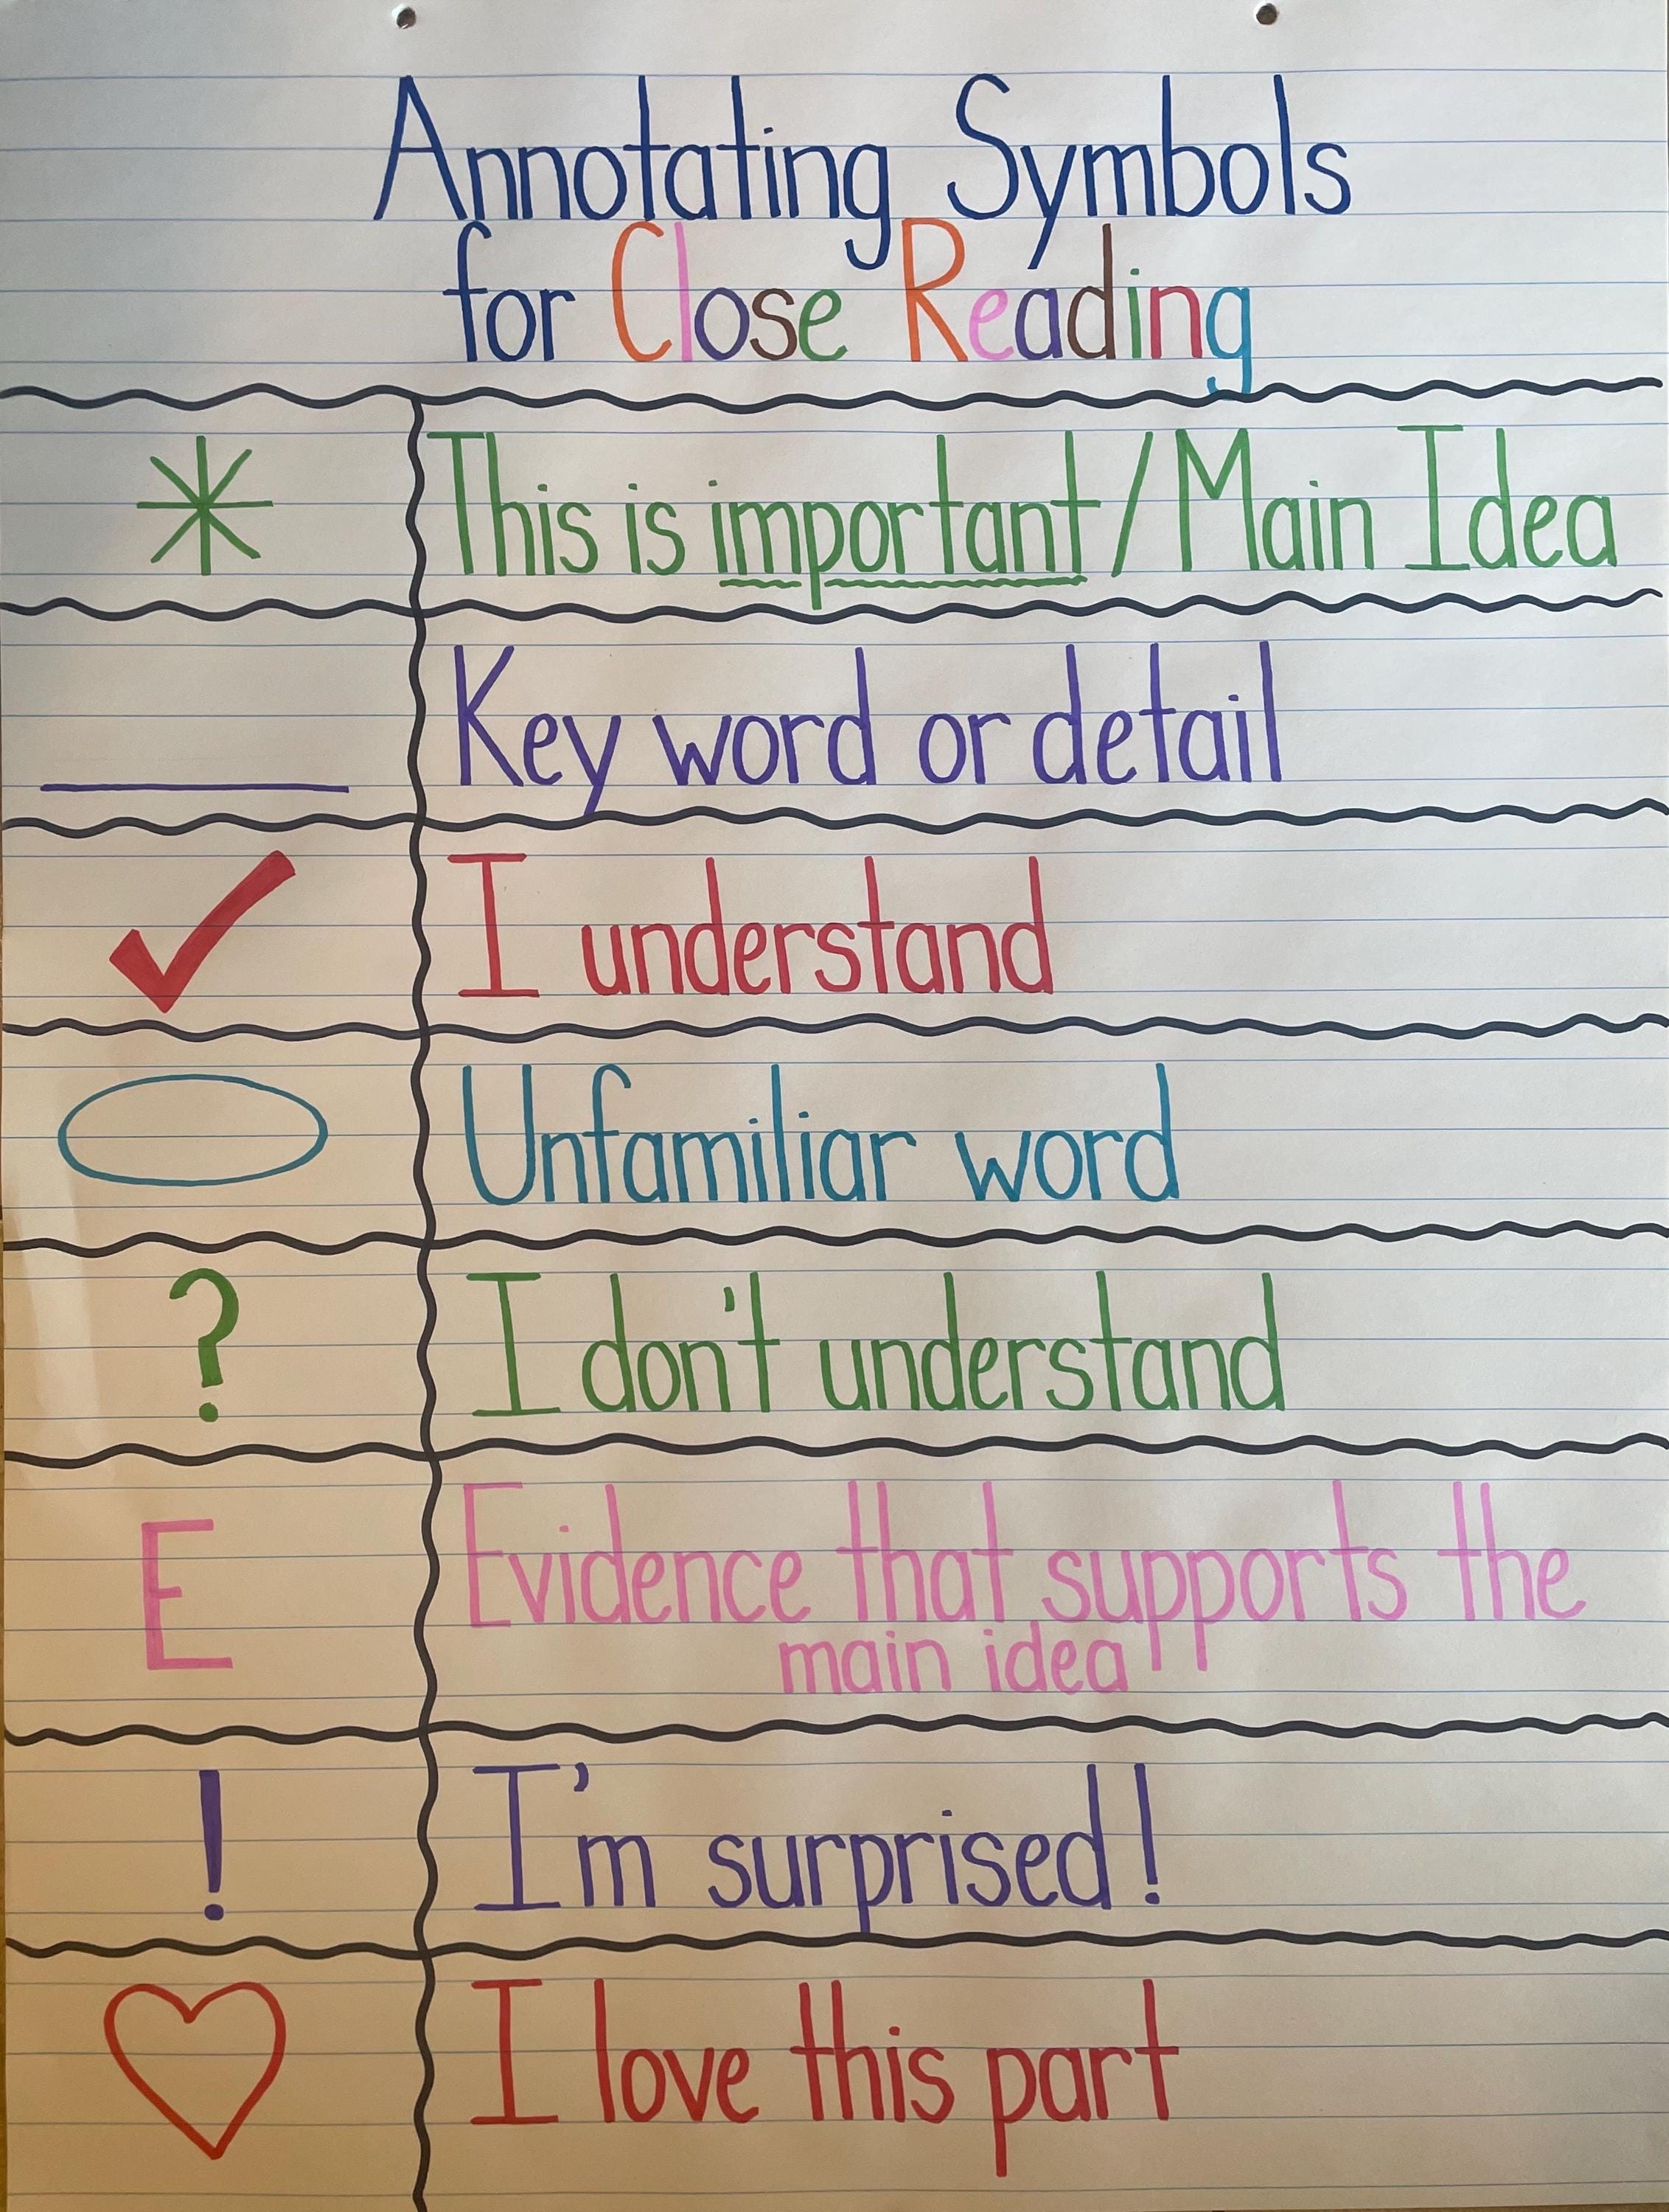 Annotating Symbols
for Close Reading
* This is important/Main Idea
Key word or detail
✓ I understand
Unfamiliar word
? I don't understand
E Evidence that supports the
main idea
! I'm surprised!
♡ I love this part